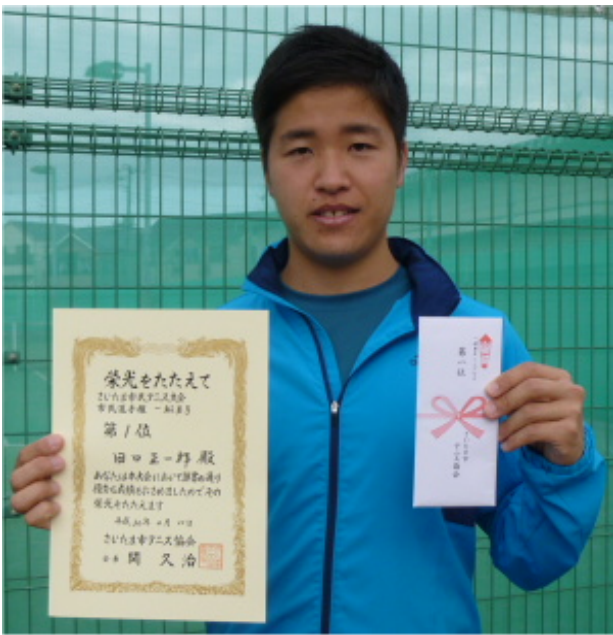 栄光をたたえて
さいたま市民テニス大会
市民選手権 一般男子
第1位
田口 正一郎 殿
あなたは本大会において頭書の通り
優秀な成績をおさめましたのでその
栄光をたたえます
さいたま市テニス協会
会長 関 久治
第一位
さいたま市
テニス協会